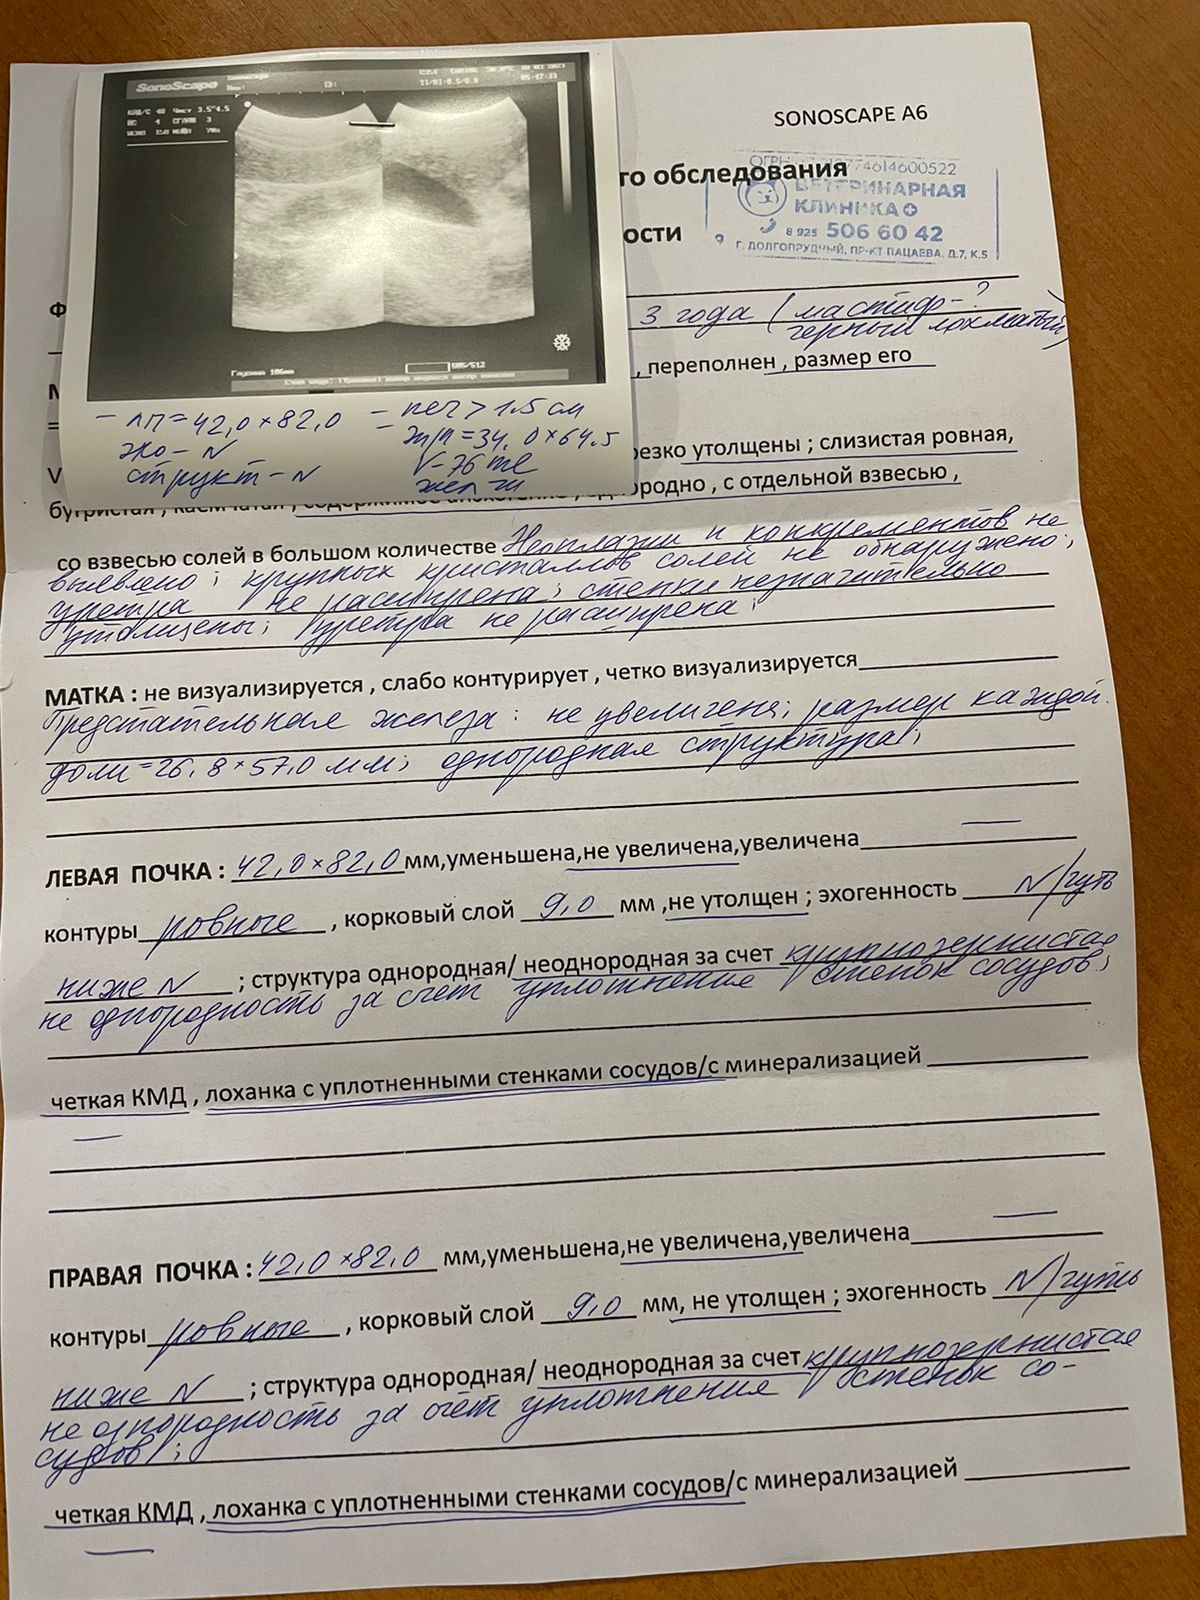 SONOSCAPE A6
SonoScape
го обследования
ОГРН 774614600522
ВЕТЕРИНАРНАЯ
КЛИНИКА
8 925 506 60 42
Г. ДОЛГОПРУДНЫЙ, ПР-КТ ПАЦАЕВА, Д.7, К.5
ости
Ф
3 года (мастиф-?
черный лохматый)
, переполнен , размер его
- ЛП=42,0×82,0
эхо - N
структ - N
- печ > 1.5 см
- ж/п=34,0×64.5
V-76 ml
желчи
резко утолщены ; слизистая ровная,
бугристая , каемчатая , содержимое анэхогенно , однородно , с отдельной взвесью ,
со взвесью солей в большом количестве Неоплазии и конкрементов не
выявлено; крупных кристаллов солей не обнаружено;
уретра не расширена; стенки незначительно
утолщены; уретра не расширена;
МАТКА : не визуализируется , слабо контурирует , четко визуализируется
Предстательная железа: не увеличена; размер каждой
доли=26,8×57,0 мм; однородная структура;
ЛЕВАЯ ПОЧКА : 42,0×82,0 мм,уменьшена,не увеличена,увеличена —
контуры ровные , корковый слой 9,0 мм ,не утолщен ; эхогенность N/чуть
ниже N ; структура однородная/ неоднородная за счет крупнозернистая
неоднородность за счет уплотнения стенок сосудов;
четкая КМД , лоханка с уплотненными стенками сосудов/с минерализацией
ПРАВАЯ ПОЧКА : 42,0×82,0 мм,уменьшена,не увеличена,увеличена —
контуры ровные , корковый слой 9,0 мм, не утолщен ; эхогенность N/чуть
ниже N ; структура однородная/ неоднородная за счет крупнозернистая
неоднородность за счёт уплотнения стенок со-
судов;
четкая КМД , лоханка с уплотненными стенками сосудов/с минерализацией